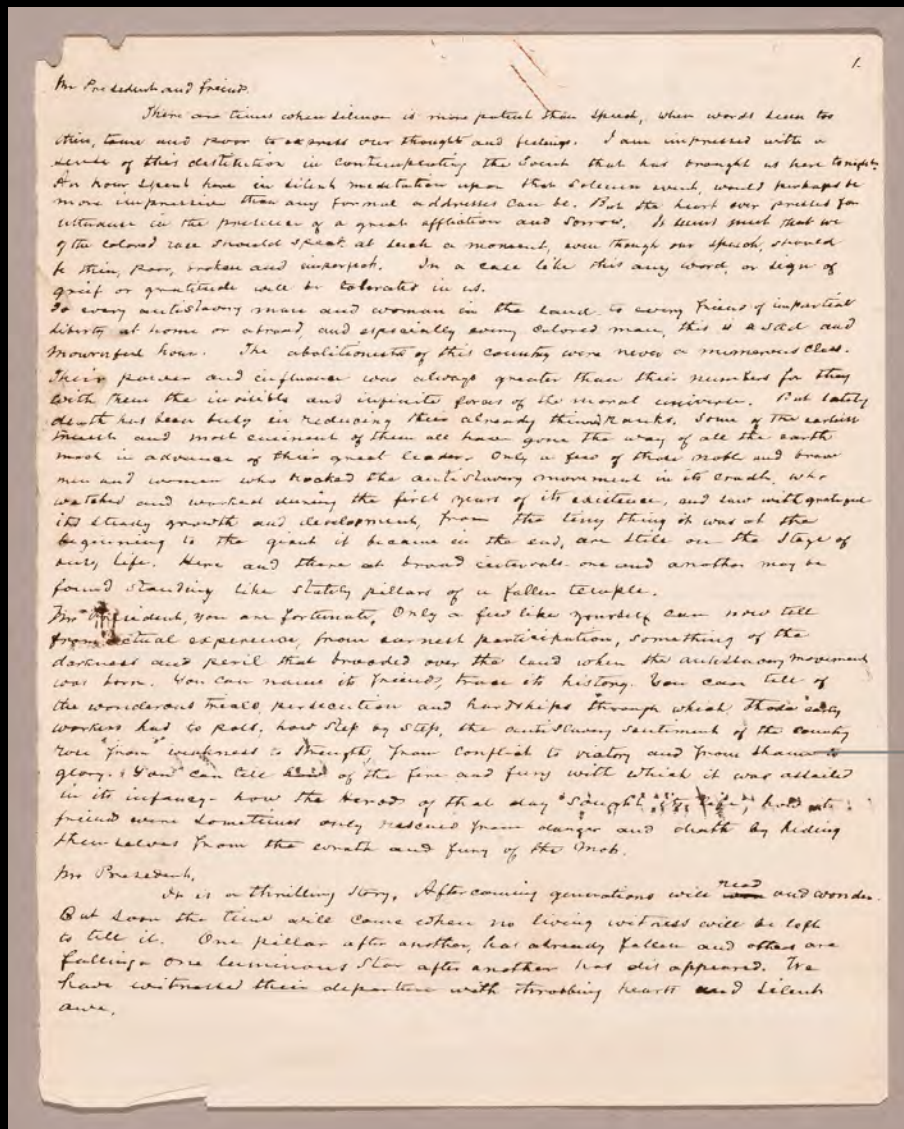 1.
Mr President and friends.
There are times when silence is more potent than speech, when words seem too
thin, tame and poor to express our thought and feelings. I am impressed with a
sense of this destitution in contemplating the Event that has brought us here tonight.
An hour spent here in silent meditation upon that Solemn event, would perhaps be
more impressive than any formal addresses can be. But the heart ever presses for
utterance in the presence of a great affliction and Sorrow. It seems meet that we
of the colored race should speak at such a moment, even though our speech, should
be thin, poor, broken and imperfect. In a case like this any word, or sign of
grief or gratitude will be tolerated in us.
To every antislavery man and woman in the land to every Friend of impartial
liberty at home or abroad, and especially every colored man, this is a sad and
mournful hour. The abolitionists of this country were never a numerous class.
Their power and influence was always greater than their numbers for they
with them the invisible and infinite forces of the moral universe. But lately
death has been busy in reducing their already thinned Ranks. Some of the earliest
and most eminent of them all have gone the way of all the earth
much in advance of their great leader. Only a few of those noble and brave
men and women who rocked the antislavery movement in its cradle, who
watched and worked during the first years of its existence, and saw with
its steady growth and development, from the tiny thing it was at the
beginning to the giant it became in the end, are still on the Stage of
busy life. Here and there at broad intervals one and another may be
found standing like stately pillars of a fallen temple.
Mr President, you are fortunate, Only a few like yourself can now tell
from actual experience, from earnest participation, something of the
darkness and peril that brooded over the land when the antislavery movement
was born. You can name its friends, trace its history. You can tell of
the wonderous trials, persecution and hardships through which those early
workers had to pass, how Step by Step, the antislavery sentiment of the country
rose "from" weakness to strength, from conflict to victory and from shame to
glory. You can tell of the fire and fury with which it was assailed
in its infancy - how the Herods of that day "Sought its life", how its
friend were sometimes only rescued from danger and death by hiding
themselves from the wrath and fury of the Mob.
Mr President,
It is a thrilling story, After coming generations will read and wonder.
But soon the time will come when no living witness will be left
to tell it. One pillar after another, has already fallen and others are
falling - one luminous Star after another has disappeared. We
have witnessed their departure with throbbing hearts and silent
awe.